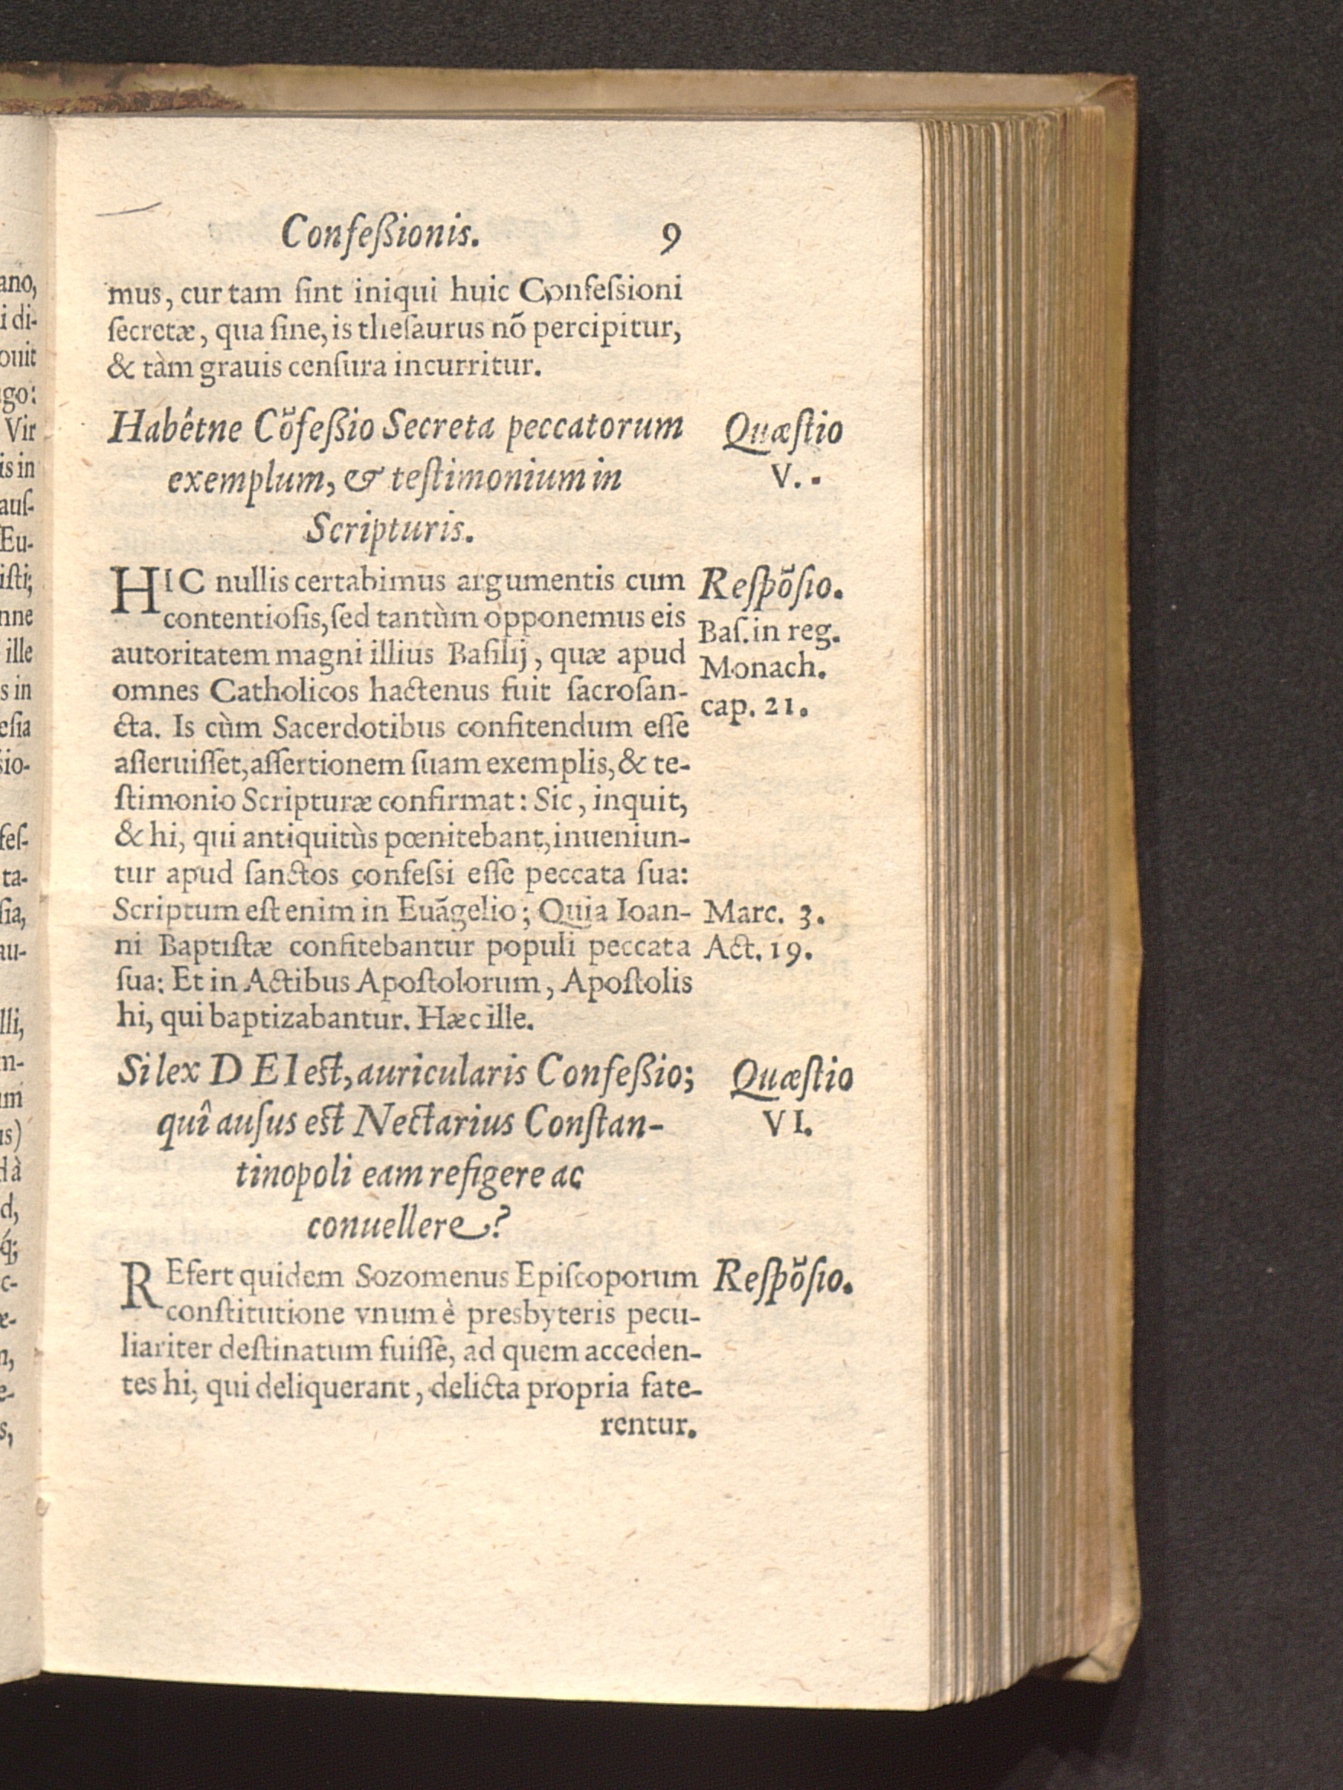 Confeßionis. 9
mus, cur tam ſint iniqui huic Confeſsioni
ſecretæ, qua ſine, is theſaurus nõ percipitur,
& tàm grauis cenſura incurritur.
Habêtne Cõfeßio Secreta peccatorum
exemplum, & teſtimonium in
Scripturis.
Quæſtio
V.
HIC nullis certabimus argumentis cum
contentioſis, ſed tantùm opponemus eis
autoritatem magni illius Baſilij, quæ apud
omnes Catholicos hactenus fuit ſacroſan-
cta. Is cùm Sacerdotibus confitendum eſſe
aſſeruiſſet, aſſertionem ſuam exemplis, & te-
ſtimonio Scripturæ confirmat: Sic, inquit,
& hi, qui antiquitùs pœnitebant, inueniun-
tur apud ſanctos confeſsi eſſe peccata ſua:
Scriptum eſt enim in Euãgelio; Quia Ioan-
ni Baptiſtæ confitebantur populi peccata
ſua: Et in Actibus Apoſtolorum, Apoſtolis
hi, qui baptizabantur. Hæc ille.
Reſpõſio.
Baſ. in reg.
Monach.
cap. 21.
Marc. 3.
Act. 19.
Si lex DEI eſt, auricularis Confeßio;
quî auſus eſt Nectarius Conſtan-
tinopoli eam refigere ac
conuellere?
Quæſtio
VI.
REfert quidem Sozomenus Epiſcoporum
conſtitutione vnum è presbyteris pecu-
liariter deſtinatum fuiſſe, ad quem acceden-
tes hi, qui deliquerant, delicta propria fate-
rentur.
Reſpõſio.
ano,
i di-
ouit
go:
Vir
is in
auſ-
Eu-
iſti;
nne
ille
s in
eſia
ſio-
feſ-
ta-
ſia,
au-
lli,
m-
um
us)
dà
d,
q́;
c-
e-
n,
e-
s,